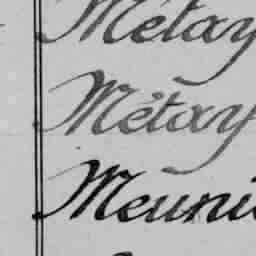 Métay
Métay
Meuni